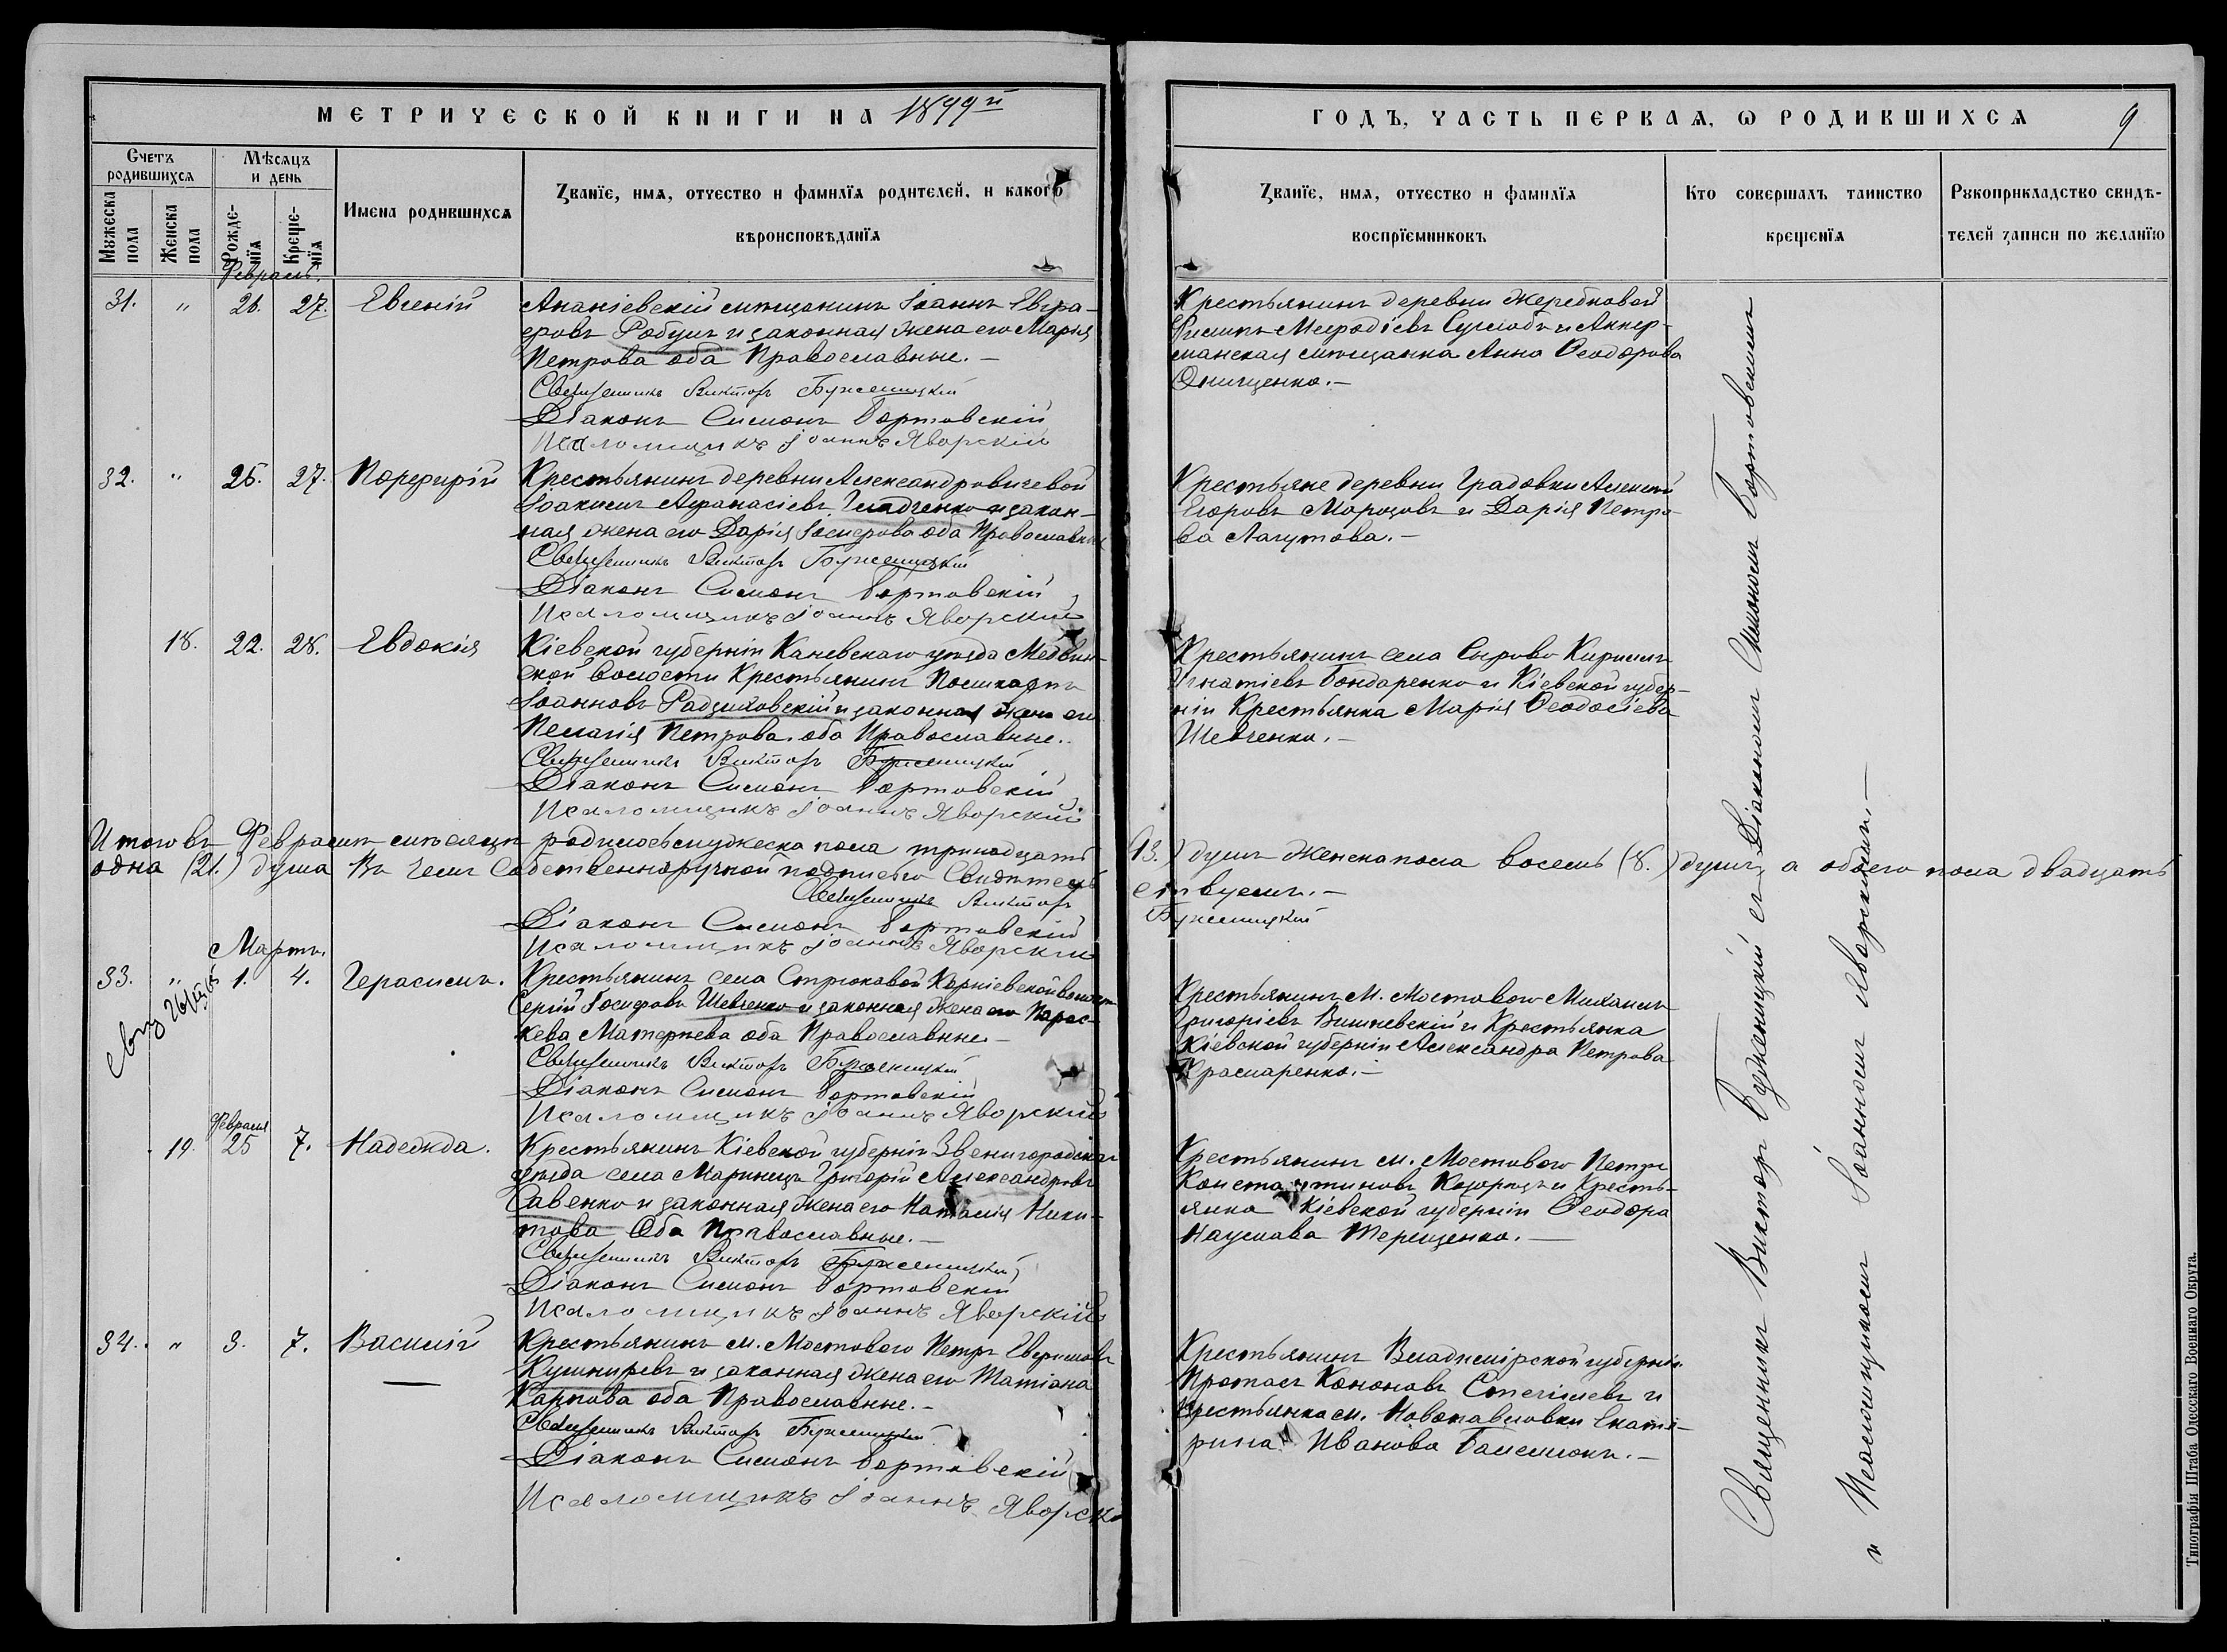 МЕТРИЧЕСКОЙ КНИГИ НА 1899й
Счетъ родившихся
Мѣсяцъ и день
Мужеска пола
Женска пола
Рожденія
Крещенія
Имена родившихся
Званіе, имя, отчество и фамилія родителей, и какого
вѣроисповѣданія
Февраль.
31. " 26. 27. Евгеній
Ананіевскій мѣщанинъ Іоаннъ Евгра-
фовъ Робулъ и законная жена его Марія
Петрова оба Православные. —
Священникъ Викторъ Буженицкій
Діаконъ Симонъ Бортовскій
Псаломщикъ Іоаннъ Яворскій
32. " 25. 27. Порфирій
Крестьянинъ деревни Александровичевой
Іоакимъ Афанасіевъ Гладченко и закон-
ная жена его Дарія Іосифова оба Православные
Священникъ Викторъ Буженицкій
Діаконъ Симонъ Бортовскій
Псаломщикъ Іоаннъ Яворскій
18. 22. 28. Евдокія
Кіевской губерніи Каневскаго уѣзда Медвин-
ской волости Крестьянинъ
Іоанновъ Радзиховскій и законная жена его
Пелагія Петрова оба Православные.
Священникъ Викторъ Буженицкій
Діаконъ Симонъ Бортовскій
Псаломщикъ Іоаннъ Яворскій
Итого въ Февралѣ мѣсяцѣ родилось мужеска пола тринадцать
одна (21.) душа Въ чемъ Собственноручной подписью Свидѣтель
Священникъ Викторъ
Діаконъ Симонъ Бортовскій
Псаломщикъ Іоаннъ Яворскій
Мартъ.
33. " 1. 4. Герасимъ.
Крестьянинъ села Стрюковой Корніевской волости
Сергій Іосифовъ Шевченко и законная жена его Парас-
кева Матфеева оба Православные —
Священникъ Викторъ Буженицкій
Діаконъ Симонъ Бортовскій
Псаломщикъ Іоаннъ Яворскій
Февраля
19. 25 7. Надежда.
Крестьянинъ Кіевской губерніи Звенигородскаго
уѣзда села Маринецъ Григорій Александровъ
Савенко и законная жена его Наталія Ники-
това Оба Православные. —
Священникъ Викторъ Буженицкій
Діаконъ Симонъ Бортовскій
Псаломщикъ Іоаннъ Яворскій
34. " 3. 7. Василій
Крестьянинъ м. Мостового Петръ
Кушниревъ и законная жена его Татіана
Карпова оба Православные. —
Священникъ Викторъ Буженицкій
Діаконъ Симонъ Бортовскій
Псаломщикъ Іоаннъ Яворск
ГОДЪ, ЧАСТЬ ПЕРВАЯ, Ѡ РОДИВШИХСЯ 9
Званіе, имя, отчество и фамилія
воспріемниковъ
Кто совершалъ таинство
крещенія
Рукоприкладство свидѣ-
телей записи по желанію
Крестьянинъ деревни Жеребковой
Филипъ Меѳодіевъ и Аккер-
манская мѣщанка Анна Ѳеодорова
Онищенко. —
Крестьяне деревни Градовки Алексій
Егоровъ Морозовъ и Дарія Петро-
ва Лагутова. —
Крестьянинъ села Сырово Кириллъ
Игнатіевъ Бондаренко и Кіевской губер-
ніи Крестьянка Марія Ѳеодосіева
Шевченко. —
13.) душъ женска пола восемь (8.) душъ, а обоего пола двадцать
ствуемъ. —
Буженицкій
Крестьянинъ М. Мостового Михаилъ
Григоріевъ Вишневскій и Крестьянка
Кіевской губерніи Александра Петрова
Крамаренко. —
Крестьянинъ м. Мостового Петръ
Константиновъ и Кресть-
янка Кіевской губерніи Ѳеодора
Наумова Терещенко. —
Крестьянинъ Владимірской губерніи
Протасъ Кононовъ и
Крестьянка м. Новопавловки Екате-
рина Иванова —
Священникъ Викторъ Буженицкій съ Діакономъ Симономъ Бортовскимъ
и Псаломщикомъ Іоанномъ Яворскимъ. —
Типографія Штаба Одесскаго Военнаго Округа.